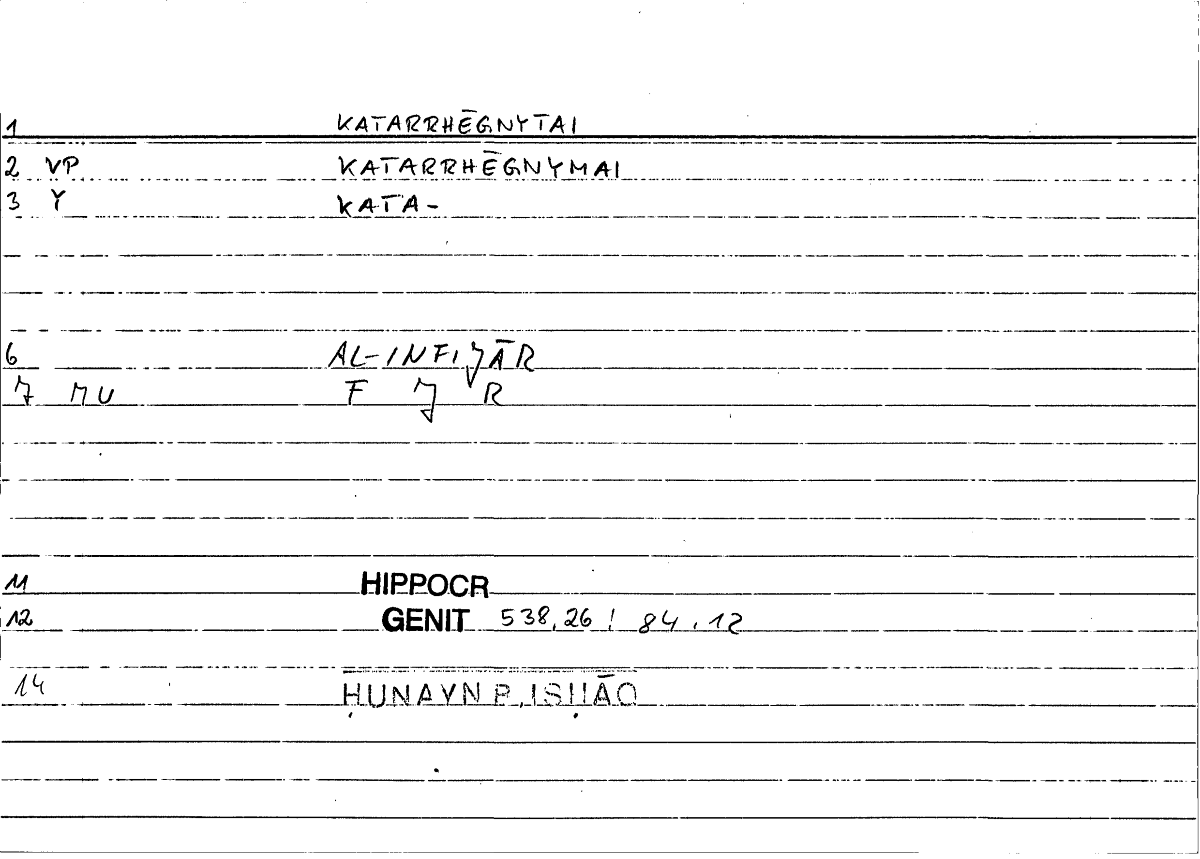 1 KATARRHĒGNYTAI
2 VP KATARRHĒGNYMAI
3 Y KATA-
6 AL-INFIJĀR
7 MU F J R
11 HIPPOCR
12 GENIT 538,26 / 84.12
14 ḤUNAYN B.ISḤĀQ